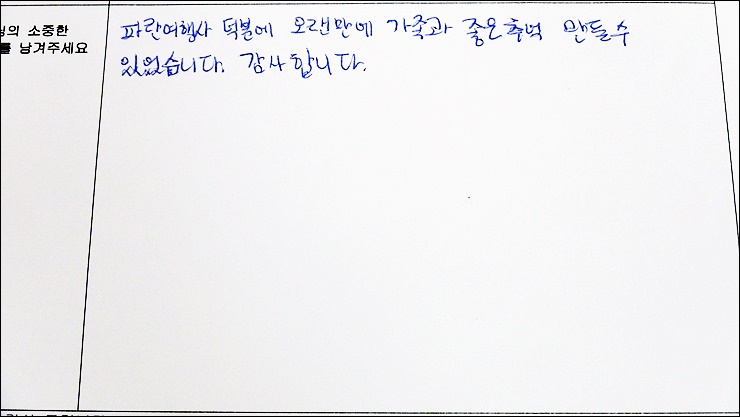 의 소중한
를 남겨주세요
파란여행사 덕분에 오랜만에 가족과 좋은추억 만들수
있었습니다. 감사합니다.